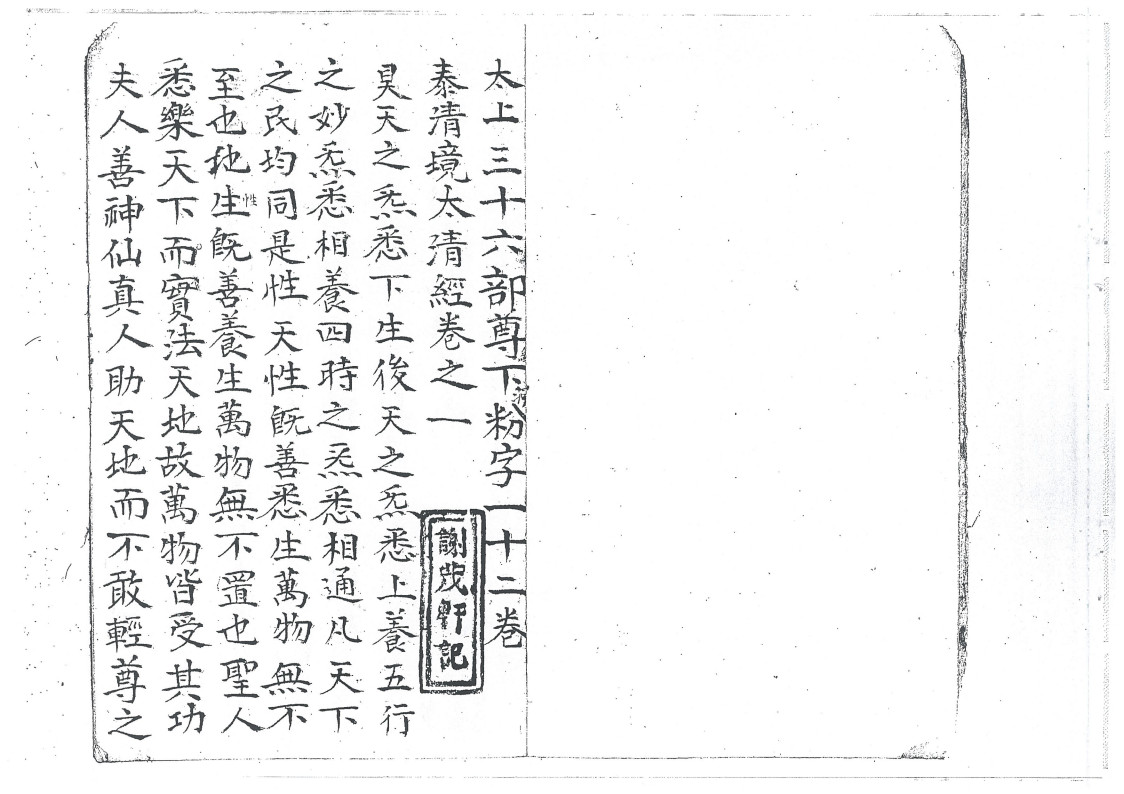 太上三十六部尊下粉字一十二卷
泰清境太清經卷之一
謝茂軒記
昊天之炁悉下生後天之炁悉上養五行
之妙炁悉相養四時之炁悉相通凡天下
之民均同是性天性旣善悉生萬物無不
至也地性生旣善養生萬物無不置也聖人
悉樂天下而實法天地故萬物皆受其功
夫人善神仙真人助天地而不敢輕尊之